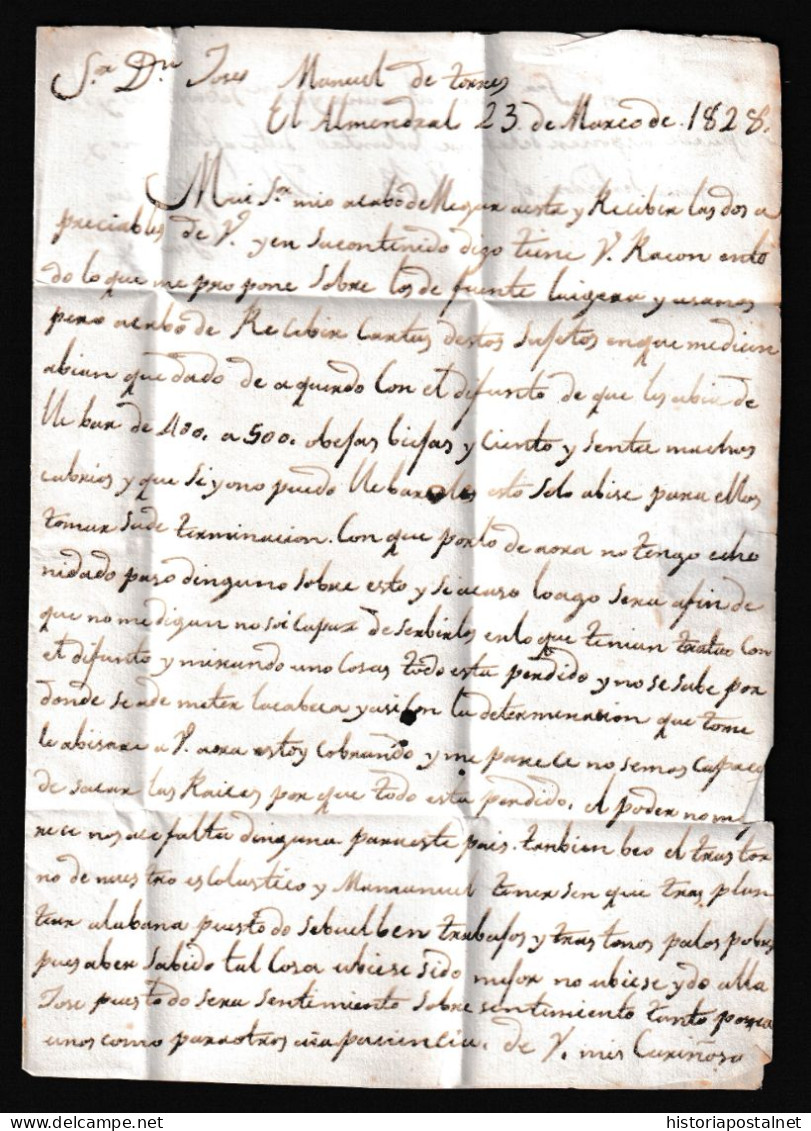 Sr. Dn. Jose Manuel de torres
El Almendral 23. de Marco de. 1828.
Mui Sr. mio acabo de llegar a esta y Recibir las dos a
preciables de V. y en su contenido digo tiene V. Racon en to
do lo que me pro pone sobre los de fuente luigera y
pero acabo de Recibir Cartas destos sujetos en que me dicen
abian que dado de a querdo con el difunto de que les abia de
lle bar de 400. a 500. obejas biejas y ciento y senta machos
cabrios y que si yo no puedo lle barselos esto solo abise para ellos
tomar su de terminacion. Con que por lo de aora no tengo echo
nidado paso dinguno sobre esto y si acaso loago sera afin de
que no me digan no soi capaz de serbirlos en lo que tenian trato con
el difunto y mirando uno cosas todo esta perdido y no se sabe por
donde se a de meter la cabeca y asi con la determinacion que tome
le abisare a V. aora estoy cobrando y me parece no semos capaces
de sacar las Raices por que todo esta perdido. el poder no me
rece nos ace falta dinguna para este pais. tanbien beo el tras tor
no de nuestro escolastico y Manuel tener sen que tras plan
tar a labana pues todo se buelben trabajos y tras tonos palos pobres
pues aber sabido tal cosa ubiese sido mejor no ubiese ydo alla
Jose pues todo sera sentimiento sobre sentimiento tanto para
unos como para otros paciencia. de V. mis Cariñoso
historiapostalnet